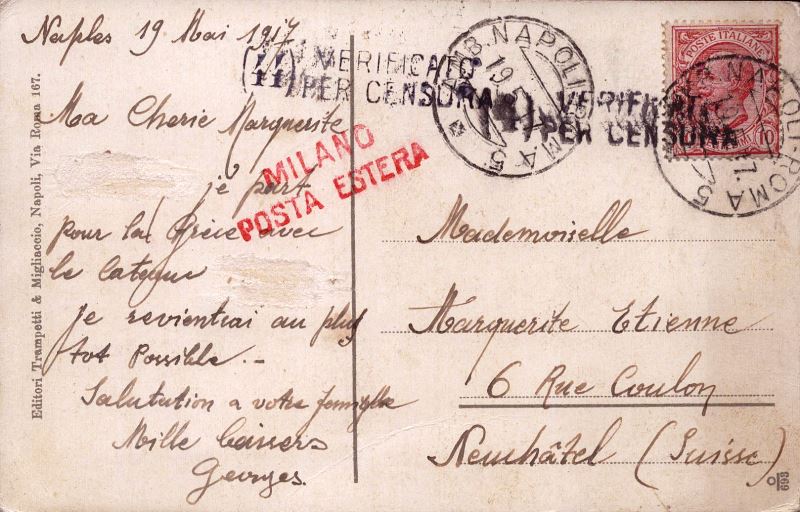 Naples 19 Mai 1917
Ma Cherie Marguerite
je part
pour la Grèce avec
le
Je revientrai au plus
tot Possible. -
Salutation a votre famiglle
Mille baisers
Georges.
Editori Trampetti & Migliaccio, Napoli, Via Roma 167.
(44) VERIFICATO
PER CENSURA
MILANO
POSTA ESTERA
AMB. NAPOLI
19.5
ROMA 5
VERIFICATO
PER CENSURA
POSTE ITALIANE
10
NAPOLI-ROMA 5
Mademoiselle
Marguerite Etienne
6 Rue Coulon
Neuchâtel (Suisse)
693